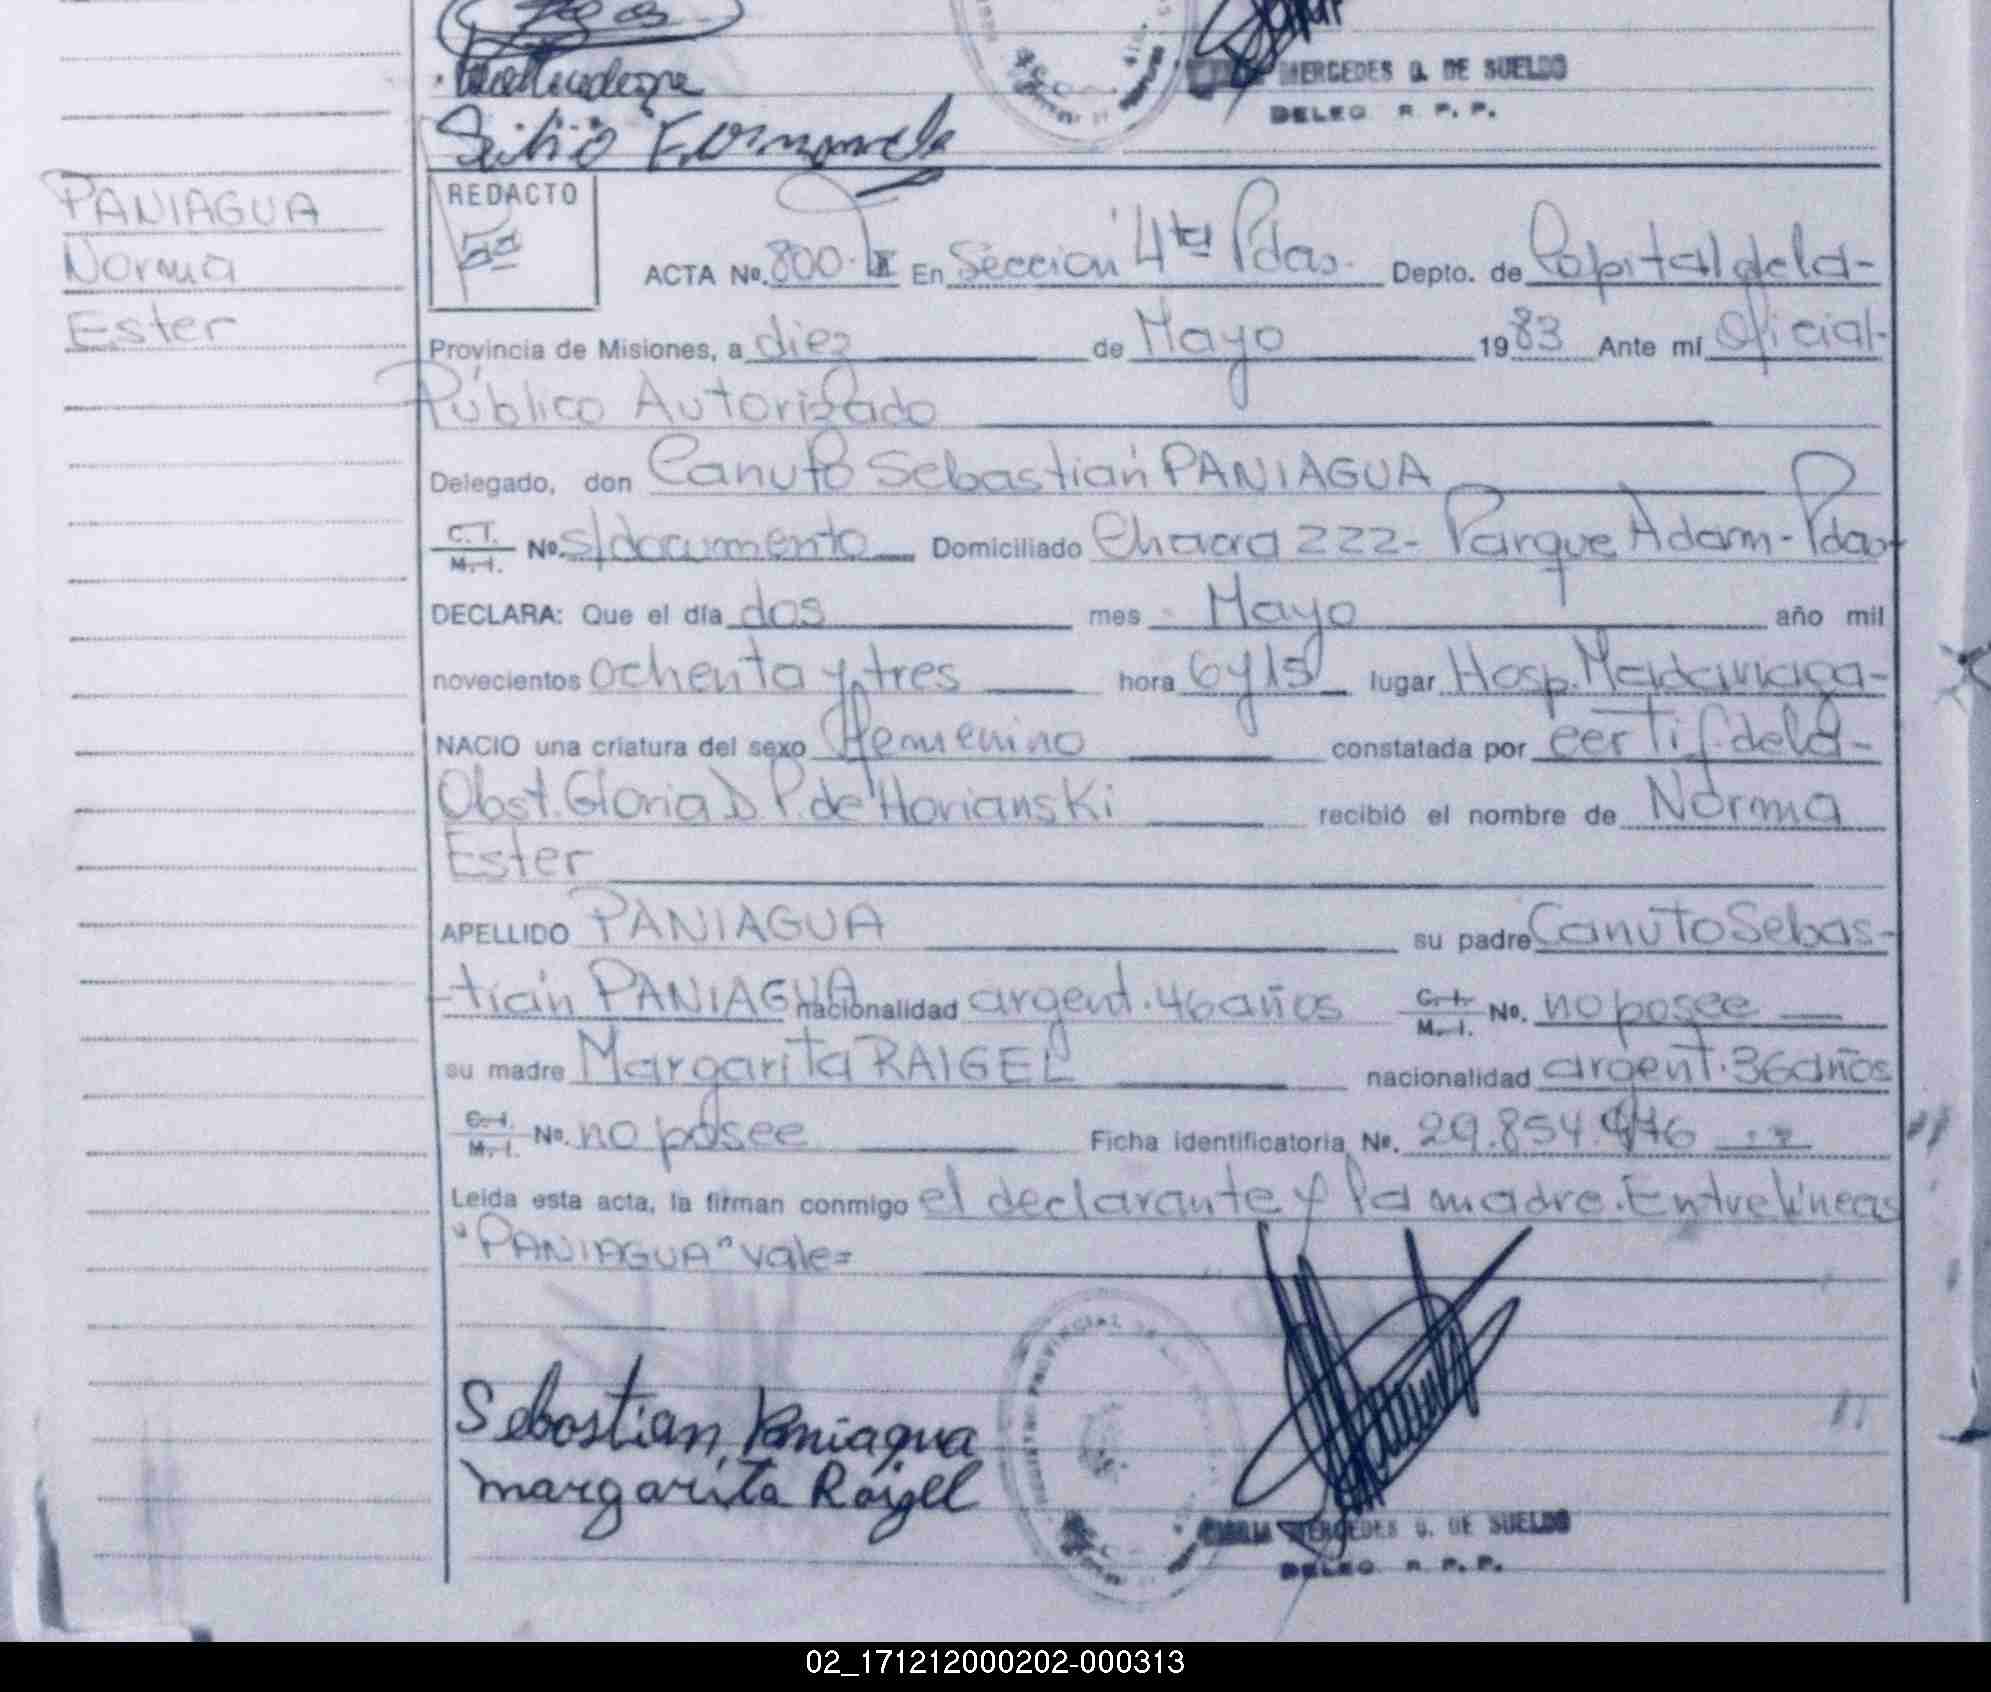 Silvio
MERCEDES G. DE SUELDO
DELEG R. P. P.
PANIAGUA
Norma
Ester
REDACTO
ACTA No. 800. En Sección 4ta Pdas. Depto. de Capital de la-
Provincia de Misiones, a diez de Mayo 1983 Ante mí Oficial-
Público Autorizado
Delegado, don Canuto Sebastián PANIAGUA
C. I. M. I. No. s/documento Domiciliado Chacra 222- Parque Adam- Pdas-
DECLARA: Que el día dos mes Mayo año mil
novecientos ochenta y tres hora 6 y 15 lugar Hosp. Madariaga-
NACIO una criatura del sexo femenino constatada por certif. de la-
Obst. Gloria D P. de Horianski recibió el nombre de Norma
Ester
APELLIDO PANIAGUA su padre Canuto Sebas-
-tián PANIAGUA nacionalidad argent. 46 años C. I. M. I. No. no posee
su madre Margarita RAIGEL nacionalidad argent. 36 años
C. I. M. I. No. no posee Ficha identificatoria No. 29.854.
Leída esta acta, la firman conmigo el declarante y la madre. Entrelíneas
"PANIAGUA" vale=
Sebastian Paniagua
margarita Raigel
MARIA MERCEDES G. DE SUELDO
DELEG R. P. P.
02_171212000202-000313